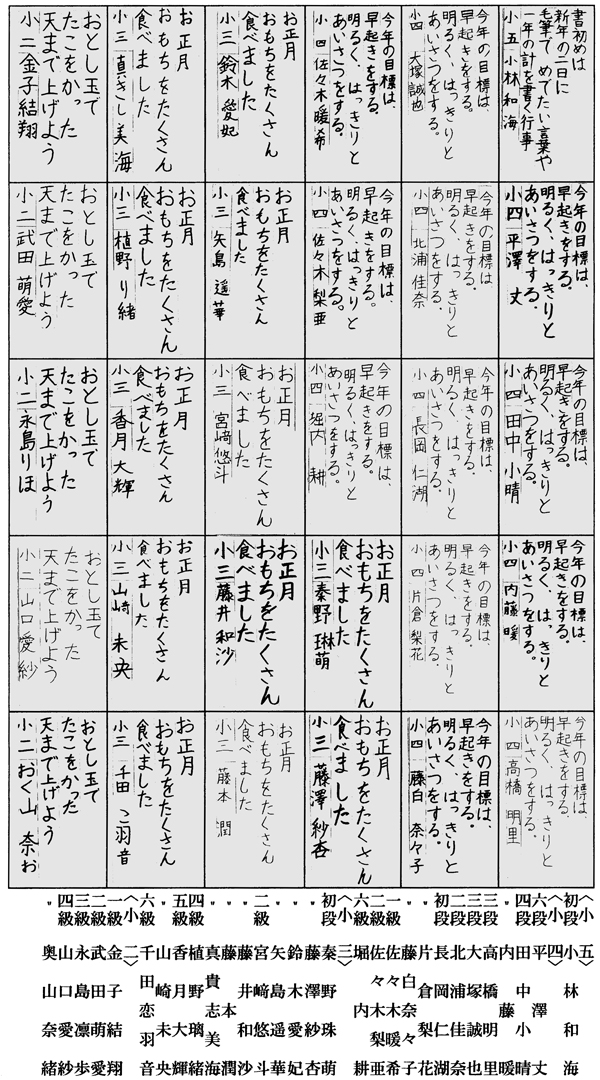 書初めは
新年の二日に
毛筆で めでたい言葉や
一年の計を書く行事
小五 小林和海
今年の目標は、
早起きをする。
明るく、はっきりと
あいさつをする。
小四 平澤 丈
今年の目標は、
早起きをする。
明るく、はっきりと
あいさつをする。
小四 田中小晴
今年の目標は、
早起きをする。
明るく、はっきりと
あいさつをする。
小四 内藤暖
今年の目標は、
早起きをする。
明るく、はっきりと
あいさつをする。
小四 高橋明里
今年の目標は、
早起きをする。
明るく、はっきりと
あいさつをする。
小四 大塚誠也
今年の目標は、
早起きをする。
明るく、はっきりと
あいさつをする。
小四 北浦佳奈
今年の目標は、
早起きをする。
明るく、はっきりと
あいさつをする。
小四 長岡仁湖
今年の目標は、
早起きをする。
明るく、はっきりと
あいさつをする。
小四 片倉梨花
今年の目標は、
早起きをする。
明るく、はっきりと
あいさつをする。
小四 藤白 奈々子
今年の目標は、
早起きをする。
明るく、はっきりと
あいさつをする。
小四 佐々木暖希
今年の目標は、
早起きをする。
明るく、はっきりと
あいさつをする。
小四 佐々木梨亜
今年の目標は、
早起きをする。
明るく、はっきりと
あいさつをする。
小四 堀内 耕
お正月
おもちをたくさん
食べました
小三 秦野琳萌
お正月
おもちをたくさん
食べました
小三 藤澤紗杏
お正月
おもちをたくさん
食べました
小三 鈴木愛妃
お正月
おもちをたくさん
食べました
小三 矢島遥華
お正月
おもちをたくさん
食べました
小三 宮﨑悠斗
お正月
おもちをたくさん
食べました
小三 藤井和沙
お正月
おもちをたくさん
食べました
小三 藤本 潤
お正月
おもちをたくさん
食べました
小三 真きし美海
お正月
おもちをたくさん
食べました
小三 植野り緒
お正月
おもちをたくさん
食べました
小三 香月大輝
お正月
おもちをたくさん
食べました
小三 山崎未央
お正月
おもちをたくさん
食べました
小三 千田 こ羽音
おとし玉で
たこをかった
天まで上げよう
小二 金子結翔
おとし玉で
たこをかった
天まで上げよう
小二 武田萌愛
おとし玉で
たこをかった
天まで上げよう
小二 永島りほ
おとし玉で
たこをかった
天まで上げよう
小二 山口愛紗
おとし玉で
たこをかった
天まで上げよう
小二 おく山 奈お
〈小五〉
初段 小林和海
〈小四〉
六段 平澤 丈
四段 田中小晴
〃 内藤 暖
三段 高橋明里
三段 大塚誠也
二段 北浦佳奈
初段 長岡仁湖
〃 片倉梨花
一級 藤白奈々子
二級 佐々木暖希
〃 佐々木梨亜
六級 堀内 耕
〈小三〉
初段 秦野珠萌
〃 藤澤紗杏
〃 鈴木愛妃
〃 矢島遥華
二級 宮﨑悠斗
〃 藤井和沙
〃 藤本 潤
〃 真貴志美海
四級 植野璃緒
五級 香月大輝
〃 山崎未央
六級 千田恋羽音
〈小二〉
一級 金子結翔
二級 武田萌愛
三級 永島凛歩
四級 山口愛紗
〃 奥山奈緒